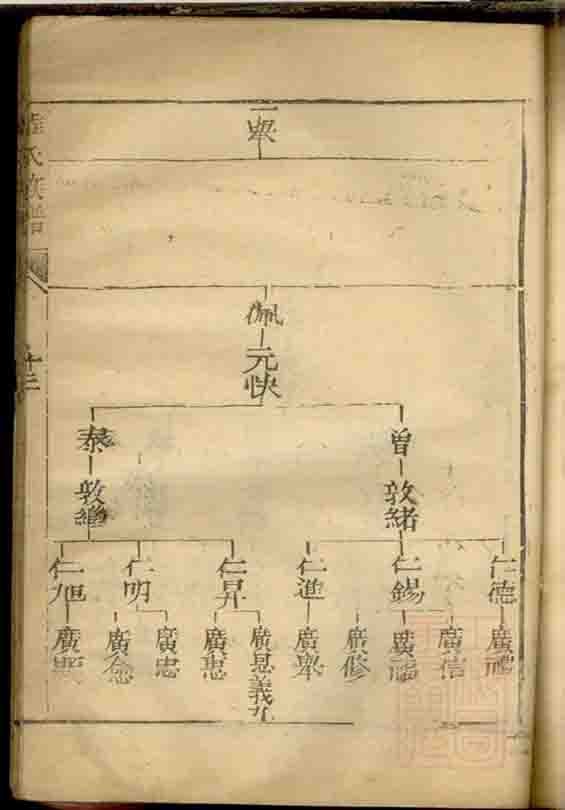 氏族譜
十三
一舉
佩
元快
曾
泰
敦緒
敦繼
仁德
仁錫
仁進
仁昇
仁明
仁旭
廣禮
廣信
廣儒
廣修
廣舉
廣恩義九
廣惠
廣忠
廣念
廣